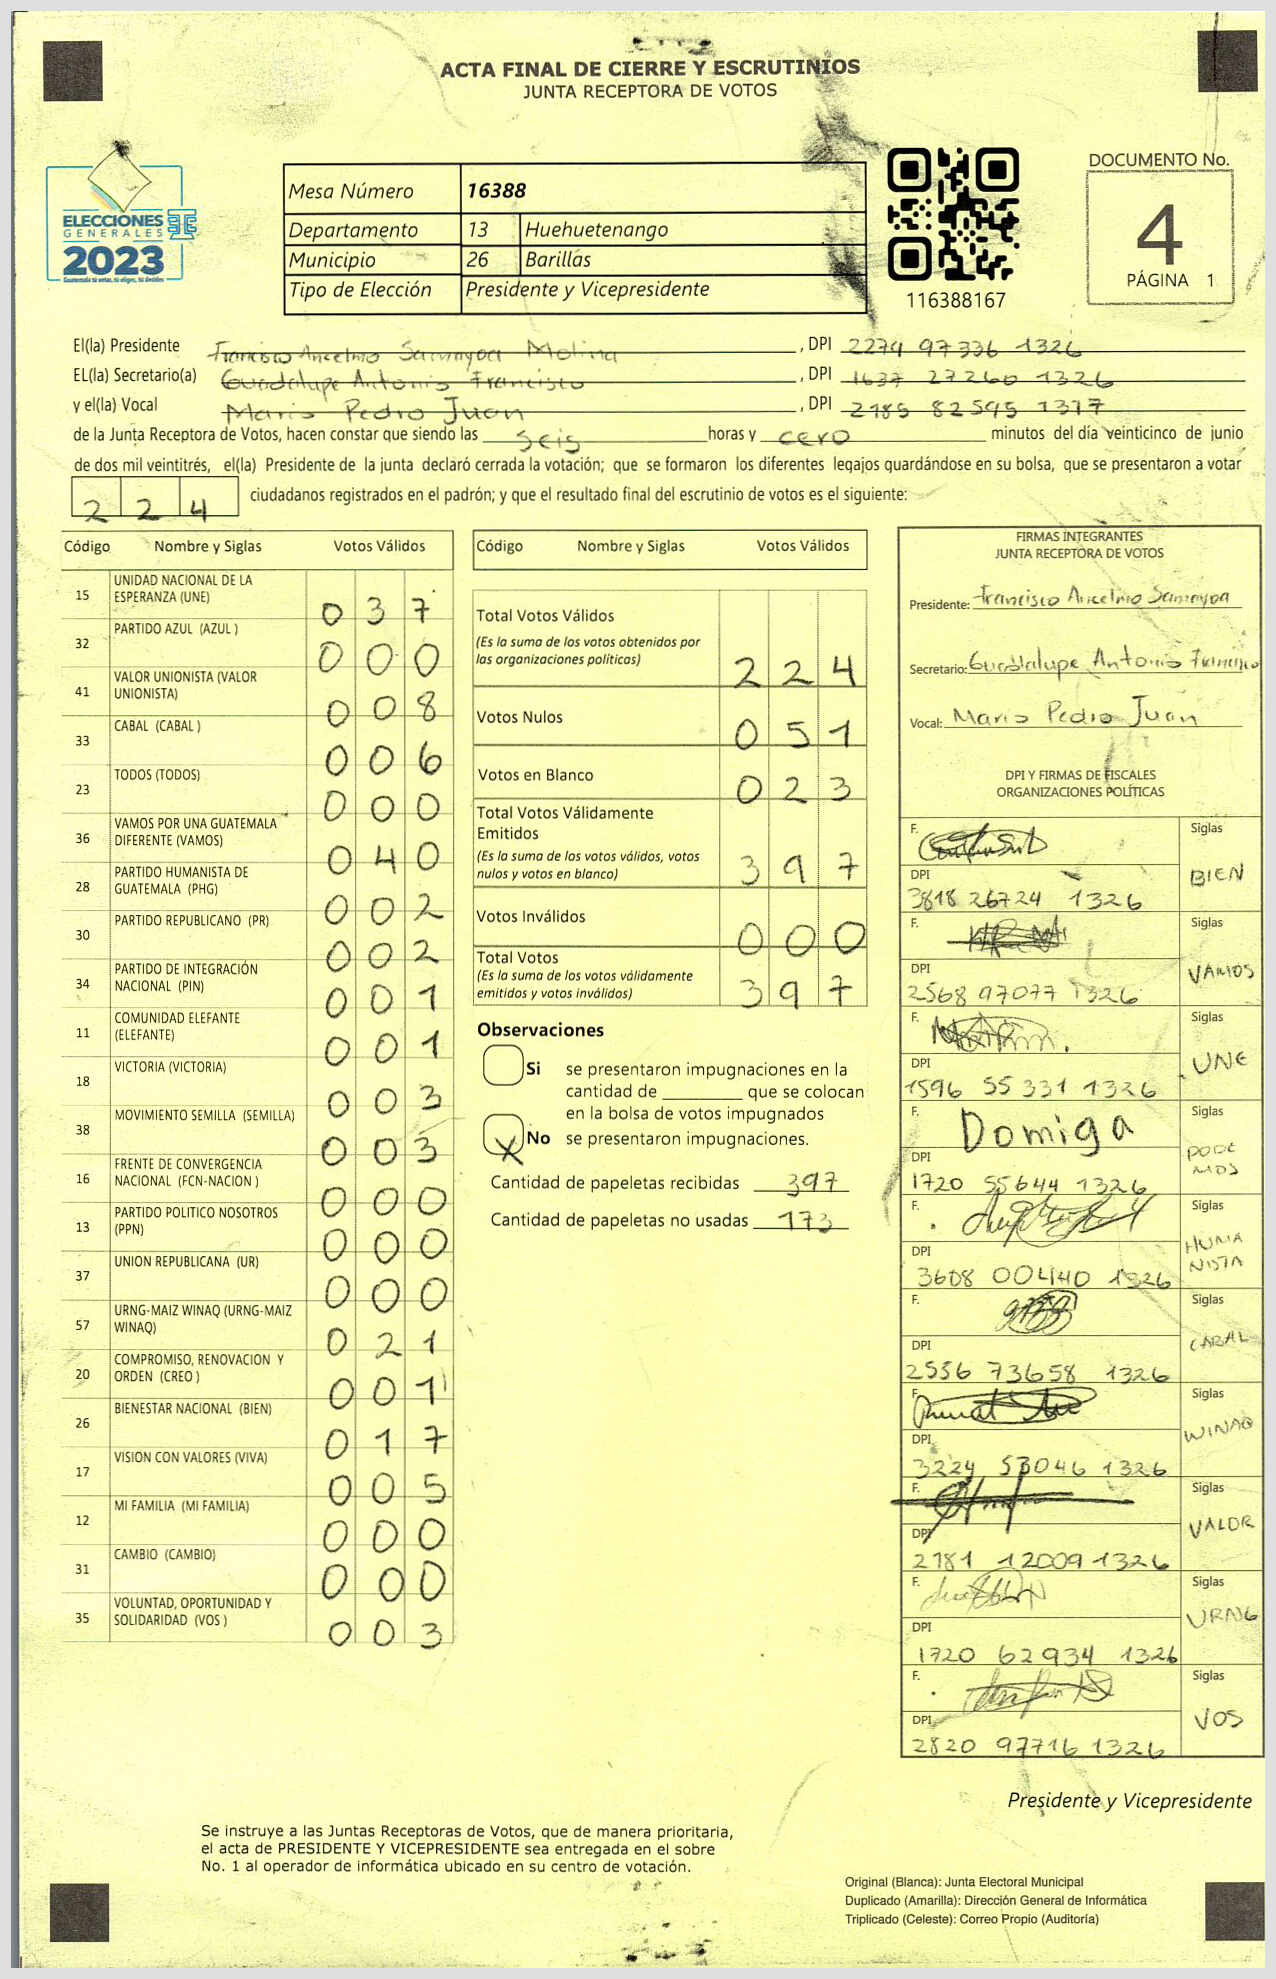 ACTA FINAL DE CIERRE Y ESCRUTINIOS
JUNTA RECEPTORA DE VOTOS
ELECCIONES
GENERALES
2023
Mesa Número 16388
Departamento 13 Huehuetenango
Municipio 26 Barillas
Tipo de Elección Presidente y Vicepresidente
116388167
DOCUMENTO No.
4
PÁGINA 1
El(la) Presidente Francisco Ancelmo Samayoa Molina , DPI 2274 97336 1326
EL(la) Secretario(a) Guadalupe Antonio Francisco , DPI 1637 27260 1326
y el(la) Vocal Mario Pedro Juan , DPI 2185 82595 1317
de la Junta Receptora de Votos, hacen constar que siendo las seis horas y cero minutos del día veinticinco de junio
de dos mil veintitrés, el(la) Presidente de la junta declaró cerrada la votación; que se formaron los diferentes legajos guardándose en su bolsa, que se presentaron a votar
224 ciudadanos registrados en el padrón; y que el resultado final del escrutinio de votos es el siguiente:
Código Nombre y Siglas Votos Válidos
15 UNIDAD NACIONAL DE LA ESPERANZA (UNE) 037
32 PARTIDO AZUL (AZUL ) 000
41 VALOR UNIONISTA (VALOR UNIONISTA) 008
33 CABAL (CABAL ) 006
23 TODOS (TODOS) 000
36 VAMOS POR UNA GUATEMALA DIFERENTE (VAMOS) 040
28 PARTIDO HUMANISTA DE GUATEMALA (PHG) 002
30 PARTIDO REPUBLICANO (PR) 002
34 PARTIDO DE INTEGRACIÓN NACIONAL (PIN) 001
11 COMUNIDAD ELEFANTE (ELEFANTE) 001
18 VICTORIA (VICTORIA) 003
38 MOVIMIENTO SEMILLA (SEMILLA) 003
16 FRENTE DE CONVERGENCIA NACIONAL (FCN-NACION ) 000
13 PARTIDO POLITICO NOSOTROS (PPN) 000
37 UNION REPUBLICANA (UR) 000
57 URNG-MAIZ WINAQ (URNG-MAIZ WINAQ) 021
20 COMPROMISO, RENOVACION Y ORDEN (CREO ) 001
26 BIENESTAR NACIONAL (BIEN) 017
17 VISION CON VALORES (VIVA) 005
12 MI FAMILIA (MI FAMILIA) 000
31 CAMBIO (CAMBIO) 000
35 VOLUNTAD, OPORTUNIDAD Y SOLIDARIDAD (VOS ) 003
Código Nombre y Siglas Votos Válidos
Total Votos Válidos
(Es la suma de los votos obtenidos por
las organizaciones políticas) 224
Votos Nulos 051
Votos en Blanco 023
Total Votos Válidamente
Emitidos
(Es la suma de los votos válidos, votos
nulos y votos en blanco) 397
Votos Inválidos 000
Total Votos
(Es la suma de los votos válidamente
emitidos y votos inválidos) 397
Observaciones
Si se presentaron impugnaciones en la
cantidad de ________ que se colocan
en la bolsa de votos impugnados
X No se presentaron impugnaciones.
Cantidad de papeletas recibidas 397
Cantidad de papeletas no usadas 173
FIRMAS INTEGRANTES
JUNTA RECEPTORA DE VOTOS
Presidente: Francisco Ancelmo Samayoa
Secretario: Guadalupe Antonio Francisco
Vocal: Mario Pedro Juan
DPI Y FIRMAS DE FISCALES
ORGANIZACIONES POLÍTICAS
F. Siglas
DPI BIEN
3818 26724 1326
F. Siglas
DPI VAMOS
2568 97077 1326
F. Siglas
DPI UNE
1596 55331 1326
F. Domiga Siglas
DPI PODEMOS
1720 55644 1326
F. Siglas
DPI HUMANISTA
3608 00440 1326
F. Siglas
DPI CABAL
2556 73658 1326
F. Siglas
DPI WINAQ
3224 53046 1326
F. Siglas
DPI VALOR
2781 12009 1326
F. Siglas
DPI URNG
1720 62934 1326
F. Siglas
DPI VOS
2820 97716 1326
Presidente y Vicepresidente
Se instruye a las Juntas Receptoras de Votos, que de manera prioritaria,
el acta de PRESIDENTE Y VICEPRESIDENTE sea entregada en el sobre
No. 1 al operador de informática ubicado en su centro de votación.
Original (Blanca): Junta Electoral Municipal
Duplicado (Amarilla): Dirección General de Informática
Triplicado (Celeste): Correo Propio (Auditoría)